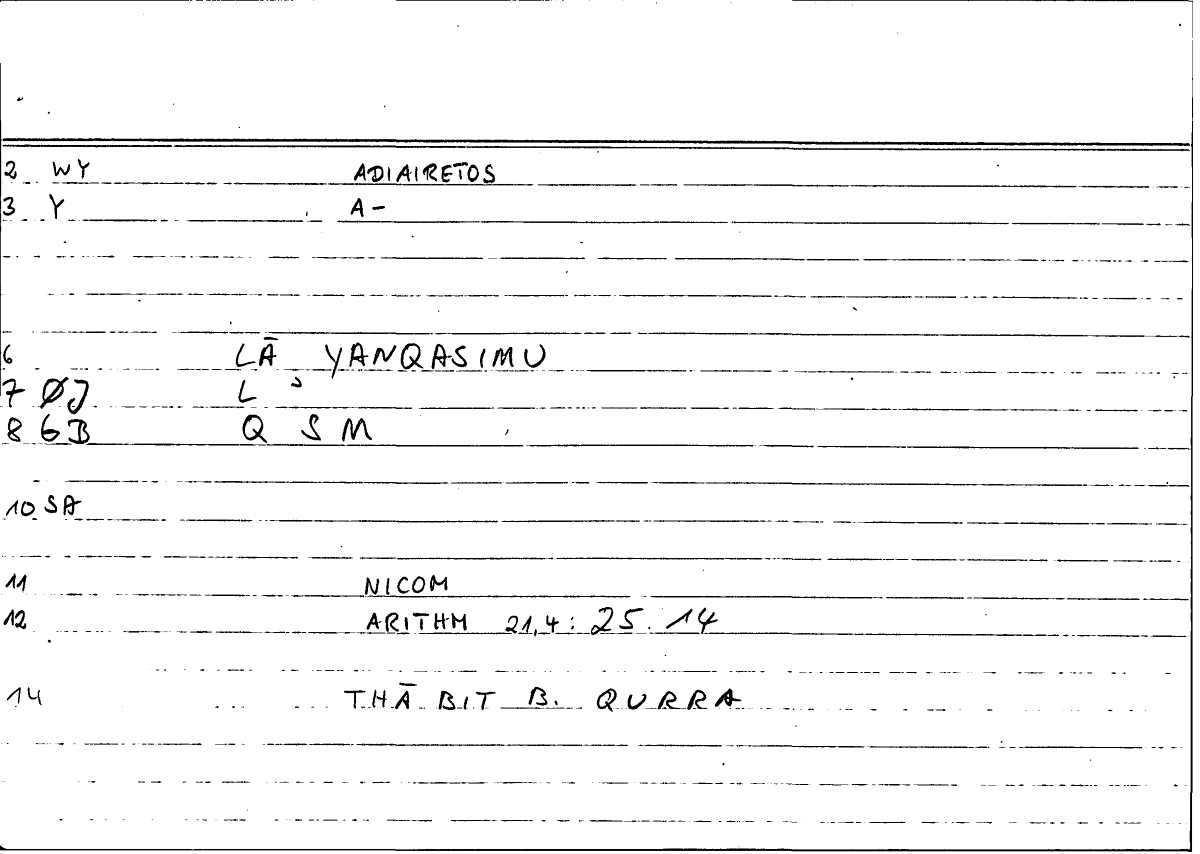 2 WY ADIAIRETOS
3 Y A-
6 LĀ YANQASIMU
7 ØJ L ʾ
8 6B Q S M
10 SA
11 NICOM
12 ARITHM 21,4: 25.14
14 THĀBIT B. QURRA